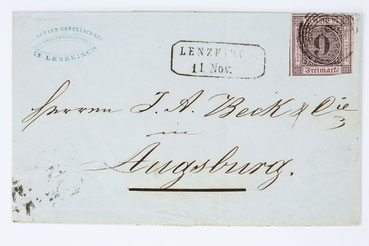 ACTIEN GESELLSCHAFT
IN LENZKIRCH
LENZKIRCH
11 Nov.
9
Freimarke
Herren J. A. Beck & Cie
in
Augsburg.